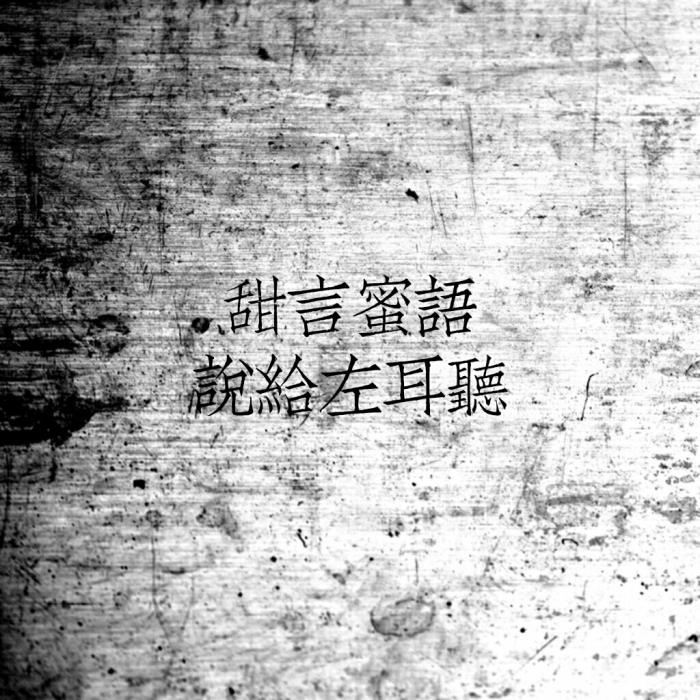 甜言蜜語
說給左耳聽